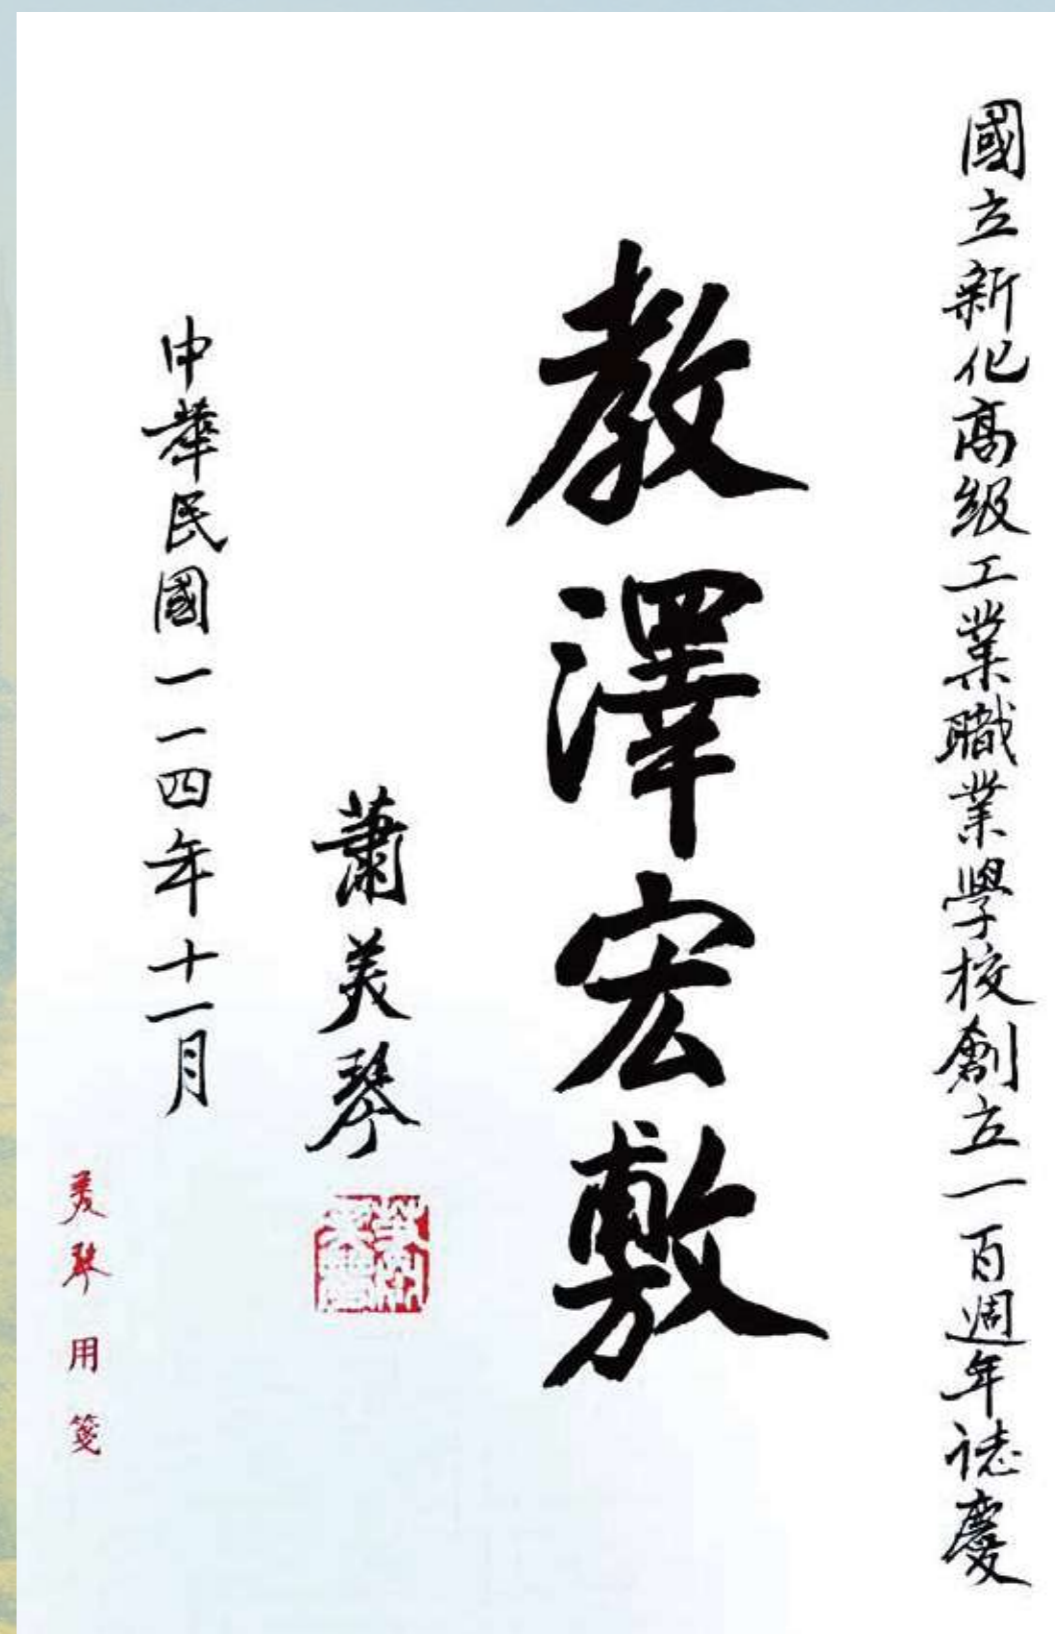 國立新化高級工業職業學校創立一百週年誌慶
教澤宏敷
蕭美琴
中華民國一一四年十一月
美琴用箋